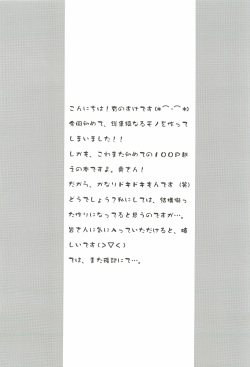 こんにちは！男のすけです(*⌒-⌒*)
今回初めて、総集編なるモノを作って
しまいました！！
しかも、これまた初めての１００Ｐ越
えの本ですよ。奥さん！
だから、かなりドキドキもんです（笑）
どうでしょう？私にしては、結構凝っ
た作りになってると思うのですが…。
皆さんに気に入っていただけると、嬉
しいです(＞▽＜)
では、また後記にて…。